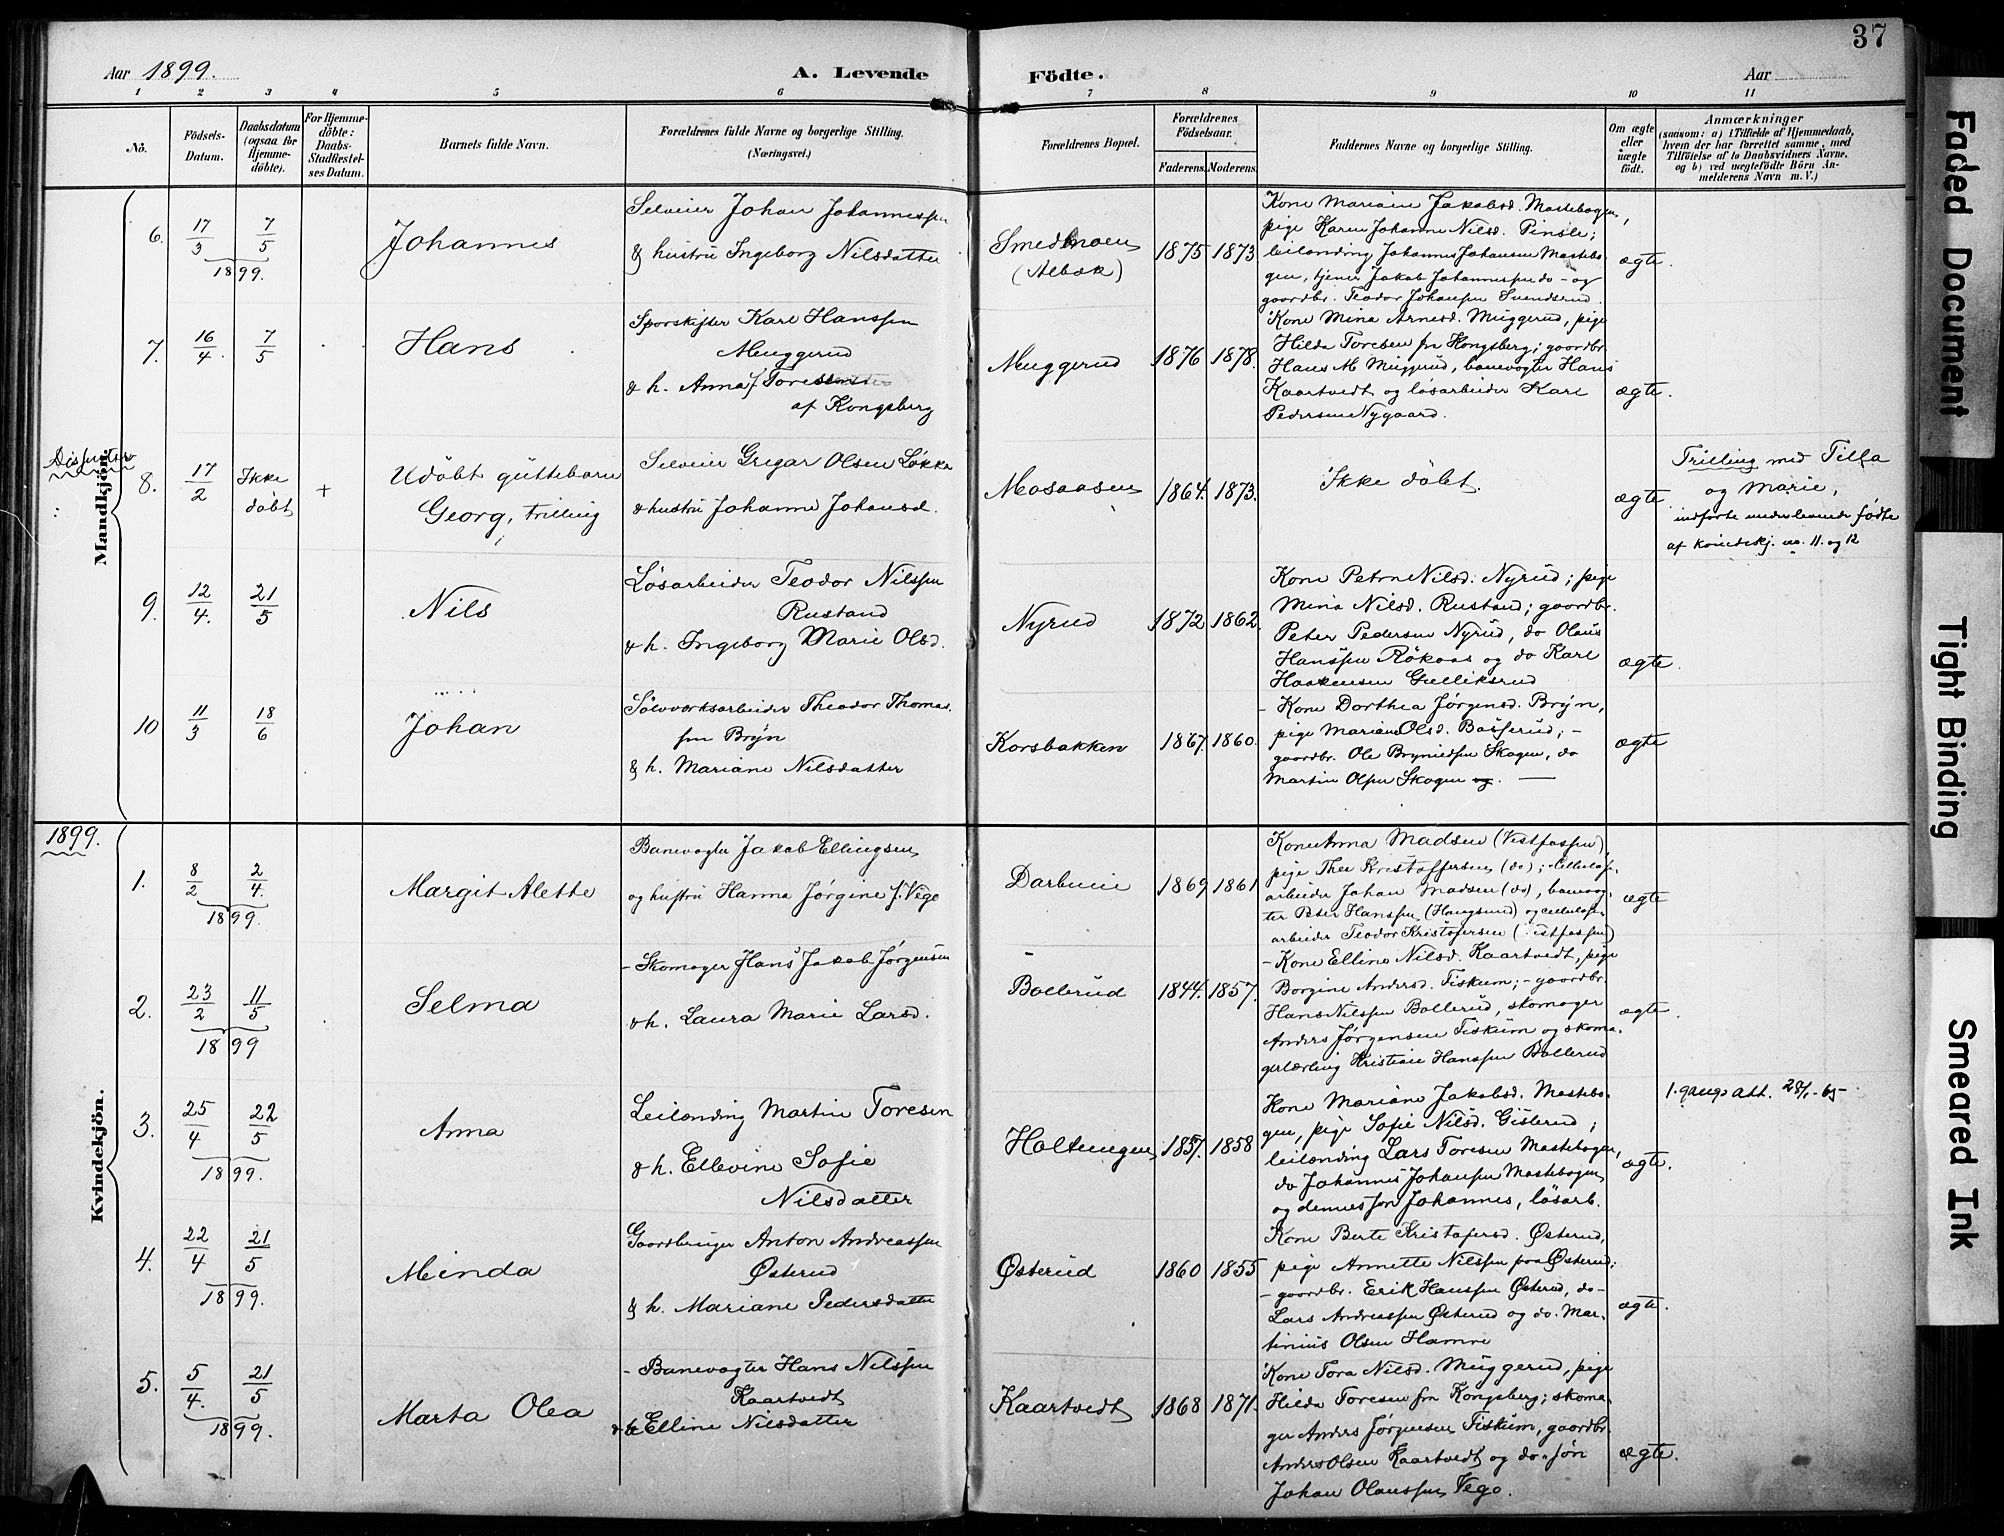 37
Aar 1899.
A. Levende Födte.
Aar
1 2 3 4 5 6 7 8 9 10 11
No.
Födsels-Datum.
Daabsdatum (ogsaa for Hjemmedöbte).
For Hjemmedöbte: Daabs-Stadfæstelses Datum.
Barnets fulde Navn.
Forældrenes fulde Navne og borgerlige Stilling.
(Næringsvei.)
Forældrenes Bopæl.
Forældrenes Födselsaar.
Faderens. Moderens.
Faddernes Navne og borgerlige Stilling.
Om ægte eller uægte födt.
Anmærkninger
(saasom: a) i Tilfælde af Hjemmedaab,
hvem der har forrettet samme, med
Tilföielse af to Daabsvidners Navne.
og b) ved uægtefödte Börn Anmelderens Navn m. V.)
Mandkjön.
6. 17/3 7/5 1899.
Johannes
Selveier Johan Johannessen
& hustru Ingeborg Nilsdatter
Smedmoen
(Albæk)
1875 1873
Kone Mariane Jakobsd. Mastebogen,
pige Karen Johanne Nilsd. Pinsle;
leilænding Johannes Johansen Mastebo-
gen, tjener Jakob Johannessen do - og
gaardbr. Teodor Johansen Svendsrud.
ægte.
7. 16/4. 7/5
Hans
Sporskifter Karl Hanssen
Muggerud
& h. Anna f. Toresen
af Kongsberg
Muggerud
1876 1878.
Kone Mina Arnesd. Muggerud, pige
Hilda Toresen fra Kongsberg; gaardbr.
Hans M Muggerud, banevogter Hans
Kaartvedt og løsarbeider Karl
Pedersen Nygaard.
ægte.
8. 17/2 Ikke døbt +
Udøbt guttebarn
Georg, trilling
Selveier Gregar Olsen Løkka
& hustru Johanne Johansd.
Mosaasen
1864. 1873.
Ikke døbt.
ægte
Trilling med Tilla
og Marie,
indførte under levende fødte
af kvindekj. no. 11. og 12
9. 12/4. 21/5
Nils
Løsarbeider Teodor Nilssen
Rustand
& h. Ingeborg Marie Olsd.
Nyrud
1872 1862.
Kone Petra Nilsd. Nyrud; pige
Mina Nilsd. Rustand; gaardbr.
Peter Pedersen Nyrud, do Olaus
Hanssen Røkaas og do Karl
Haakensen Gulliksrud
ægte.
10 11/3 18/6
Johan
Sølvverksarbeider Theodor Thomas
sen Bryn
& h. Mariane Nilsdatter
Korsbakken
1867. 1860.
- Kone Dorthea Jørgensd. Bryn,
pige Mariane Olsd. Basserud; -
gaardbr. Ole Brynildsen Skogen, do
Martin Olsen Skogen og. —
ægte
1899.
Kvindekjön.
1. 8/2 2/4. 1899.
Margit Alette
Banevogter Jakob Ellingsen
og hustru Hanna Jørgine f. Vego
Darbuie
1869 1861
Kone Anna Madsen (Vestfossen),
pige Thea Kristoffersen (do); cellulose-
arbeider Johan Madsen (do), banevog-
ter Peter Hanssen (Haugsund) og cellulose-
arbeider Teodor Kristofersen (Vestfossen)
ægte
2. 23/2 11/5 1899
Selma
- Skomager Hans Jakob Jørgensen
& h. Laura Marie Larsd.
Bollerud
1844. 1857.
- Kone Elline Nilsd. Kaartvedt, pige
Borgine Andersd. Fiskum; - gaardbr.
Hans Nilssen Bollerud, skomager
Anders Jørgensen Fiskum og skoma-
gerlærling Kristian Hanssen Bollerud
ægte.
3. 25/4 22/5 1899.
Anna
Leilænding Martin Toresen
& h. Ellevine Sofie
Nilsdatter
1857. 1858
Kone Mariane Jakobsd. Mastebo-
gen, pige Sofie Nilsd. Gisterud;
leilænding Lars Toresen Mastebogen,
do Johannes Johansen Mastebogen
og dennes søn Johannes, løsarb.
ægte.
1. gangs att.
4. 22/4 21/5 1899.
Minda
Gaardbruger Anton Andreassen
Østerud
& h. Mariane Pedersdatter
Østerud
1860 1855
Kone Berte Kristofersd. Østerud,
pige Annette Nilssen paa Østerud;
- gaardbr. Erik Hanssen Østerud, do -
Lars Andreassen Østerud og do. Mar-
tinius Olsen Hamre
ægte.
5. 5/4. 21/5 1899.
Marta Olea
- Banevogter Hans Nilssen
Kaartvedt
& h Elline Nilsdatter
Kaartvedt
1868 1871.
Kone Tora Nilsd. Muggerud, pige
Hilda Toresen fra Kongsberg; skoma-
ger Anders Jørgensen Fiskum, gaardbr.
Anders Olsen Kaartvedt og do. søn
Johan Olaussen Vego.
ægte.
Faded Document
Tight Binding
Smeared Ink